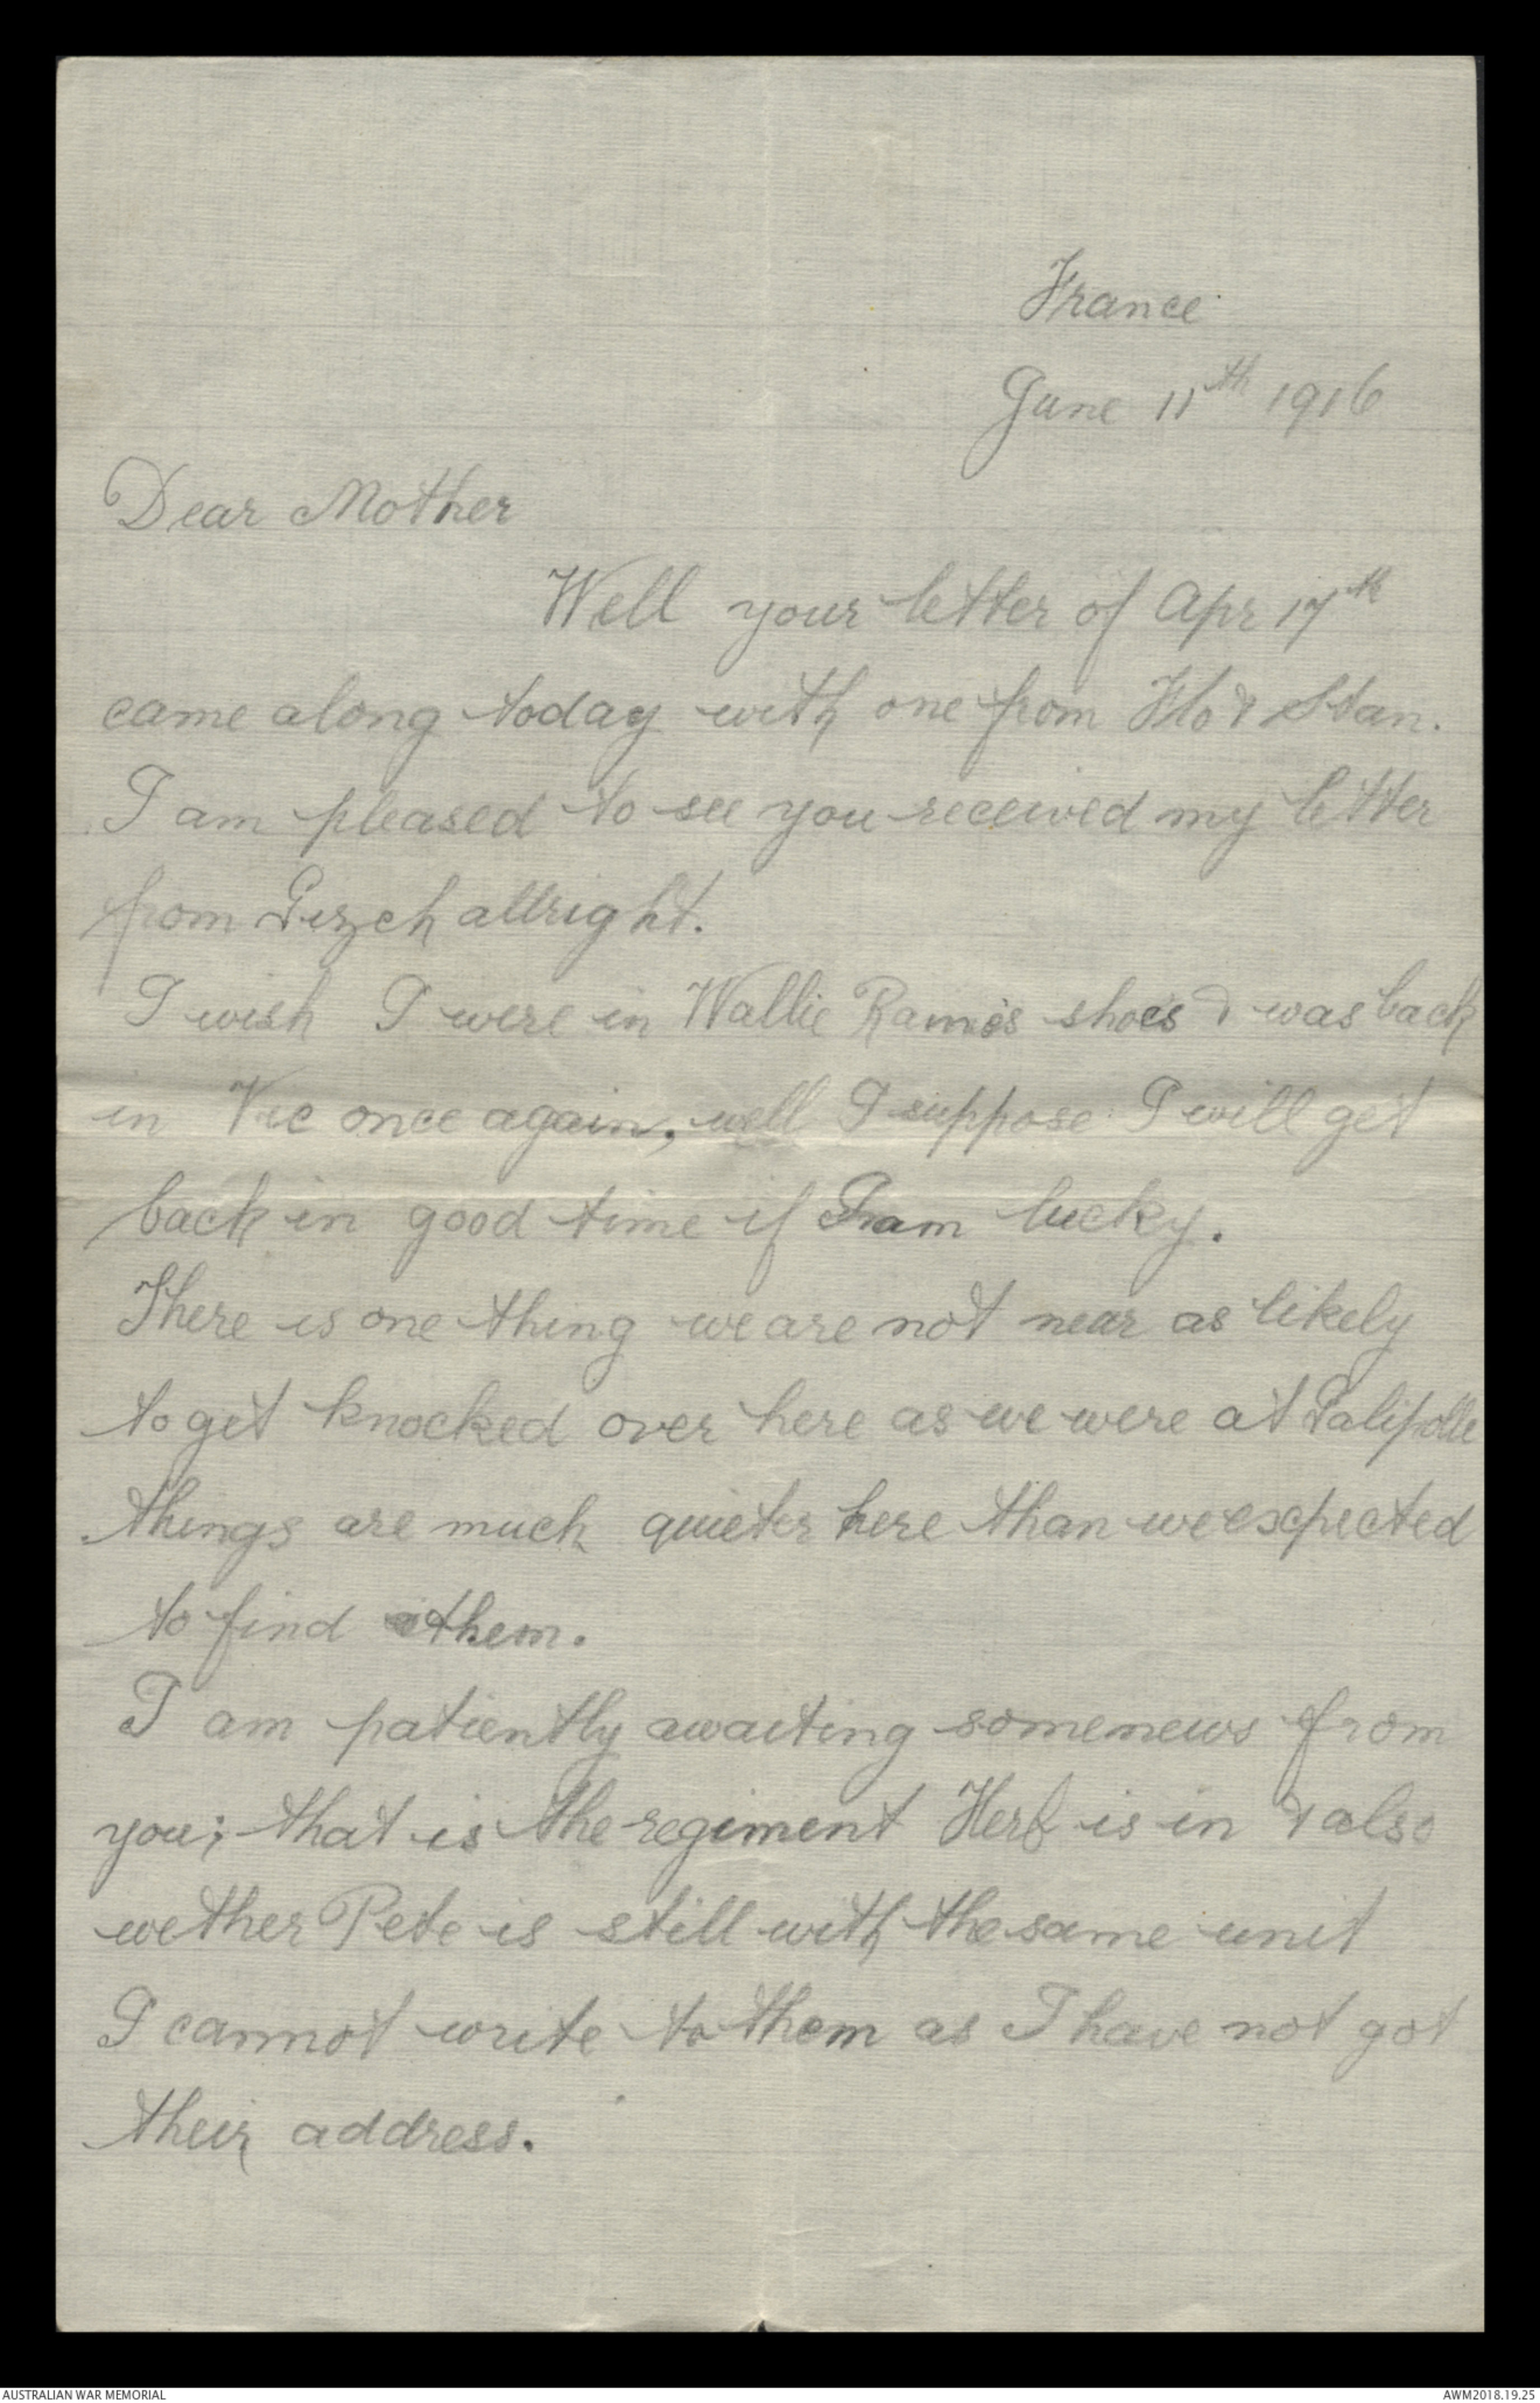 France
June 11th 1916
Dear Mother
Well your letter of Apr 17th
came along today with one from Flo & Stan.
I am pleased to see you received my letter
from Gizeh allright.
I wish I were in Wallie shoes & was back
in Vic once again, well I suppose I will get
back in good time if I am lucky.
There is one thing we are not near as likely
to get knocked over here as we were at
things are much quieter here than we expected
to find them.
I am patiently awaiting some news from
you; that is the regiment Herb is in & also
wether Pete is still with the same unit
I cannot write to them as I have not got
their address.
AUSTRALIAN WAR MEMORIAL
AWM2018.19.25